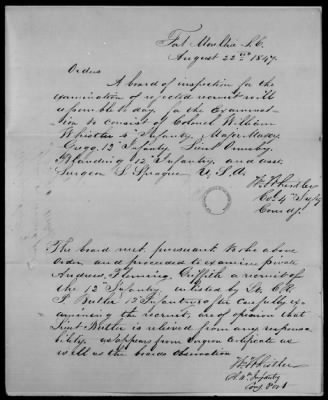 Fort Moultrie S.C.
August 22nd 1847.
Orders
A board of inspection for the
examination of rejected recruits will
assemble to day for the Examina
tion to consist of Colonel William
Whistler 4th Infantry, Major Maxcy
Gregg 12th Infantry, Lieut Ormsby
Blanding 12th Infantry, and asst.
Surgeon Sprague U.S.A.
W. Whistler
Col. 4th Infty
Comdg.
The board met pursuant to the above
Order and proceeded to examine private
Andrew Griffith a recruit of
the 12th Infantry enlisted by Lt.
Butler 12 Infantry after carefully ex
amining the recruit, are of opinion that
Lieut Butler is relieved from any respon
sibility, as appears from Surgeon Certificate as
well as the boards observation
W. Whistler
Col. 4th Infantry
Comg Post